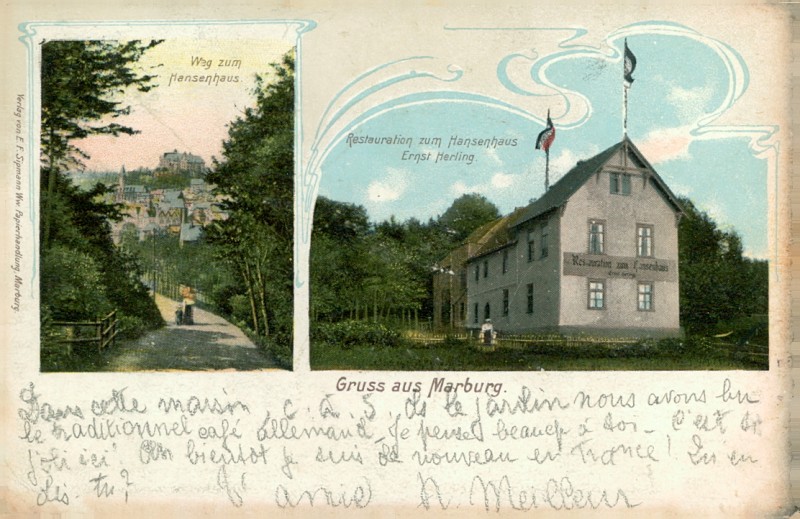 Weg zum
Hansenhaus.
Restauration zum Hansenhaus
Ernst Herling.
Restauration zum Hansenhaus
Ernst Herling
Verlag von E. F. Sipmann Ww. Papierhandlung, Marburg.
Gruss aus Marburg.
Dans cette maison, c. à. d. ds le jardin nous avons bu
le traditionnel café allemand. Je pense beaucp à toi - C'est si
joli ici! A bientôt je suis de nouveau en France! Qu'en
dis-tu?
L'amie